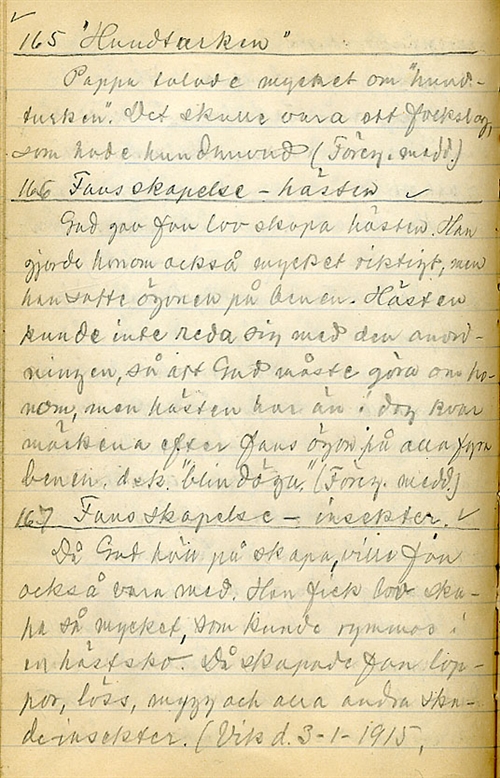 165 "Hundturken"
Pappa talade mycket om "hund-
turken". Det skulle vara ett folkslag,
som hade hundhuvud (Föreg. medd.)
166 Fans skapelse - hästen ✓
Gud gav fan lov skapa hästen. Han
gjorde honom också mycket riktigt, men
han satte ögonen på benen. Hästen
kunde inte reda sig med den anord-
ningen, så att Gud måste göra om ho-
nom, men hästen har än i dag kvar
märkena efter fans ögon på alla fyra
benen. d.s.k. "blindöga." (Föreg. medd)
167 Fans skapelse - insekter. ✓
Då Gud höll på skapa, ville fan
också vara med. Han fick lov ska-
pa så mycket, som kunde rymmas i
en hästsko. Då skapade fan lop-
por, löss, mygg och alla andra ska-
deinsekter. (Vik d. 3-1-1915,